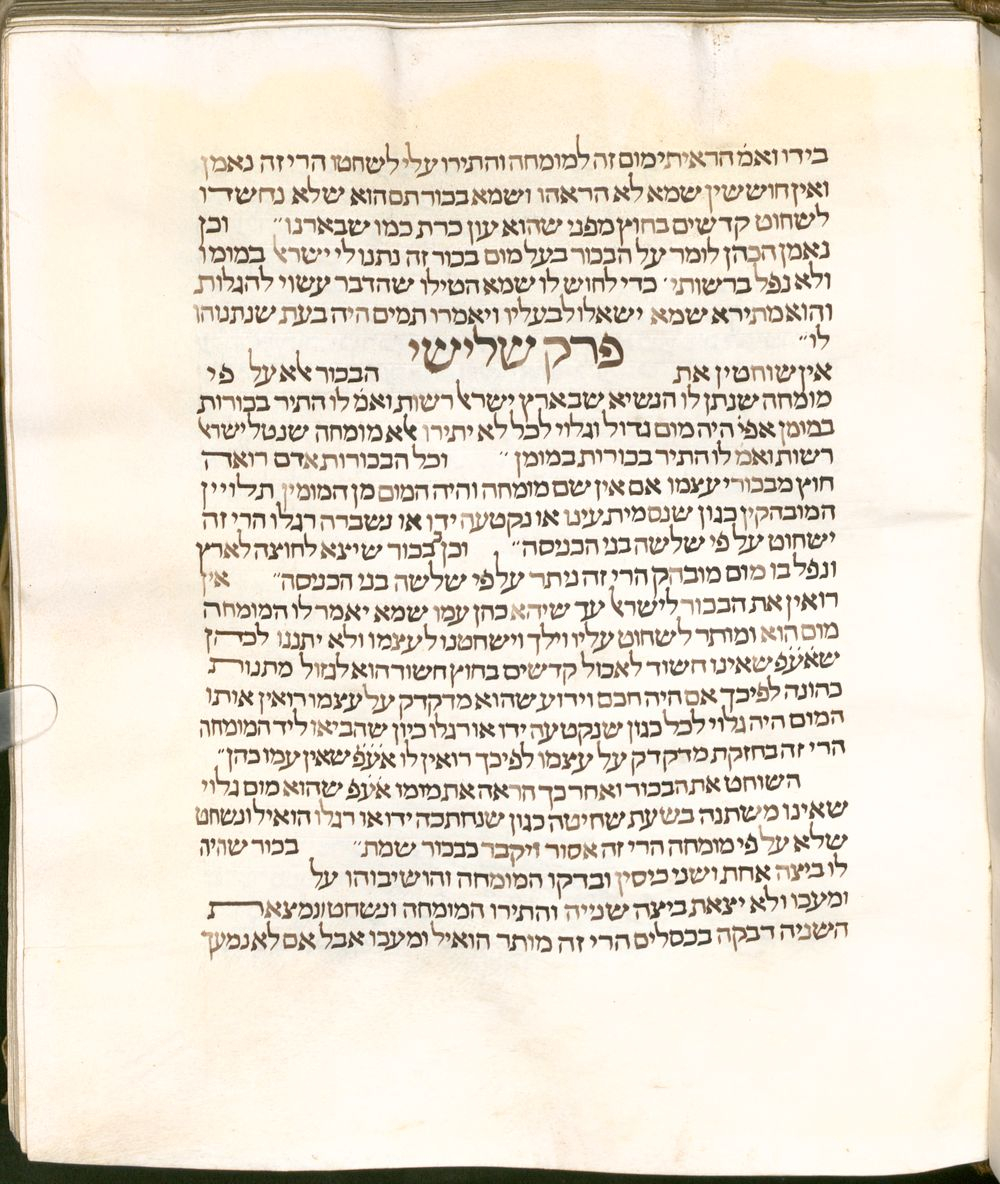 בידו ואמ׳ הראיתי מום זה למומחה והתירו עלי לשחטו הרי זה נאמן
ואין חוששין שמא לא הראהו ושמא בכור תם הוא שלא נחשדו
לשחוט קדשים בחוץ מפני שהוא עון כרת כמו שבארנו״ וכן
נאמן הכהן לומר על הבכור בעל מום בכור זה נתנו לי ישראל במומו
ולא נפל ברשותי כדי לחוש לו שמא הטילו שהדבר עשוי להגלות
והוא מתירא שמא ישאלו לבעליו ויאמרו תמים היה בעת שנתנוהו
לו״
פרק שלישי
אין שוחטין את הבכור אלא על פי
מומחה שנתן לו הנשיא שבארץ ישראל רשות ואמ׳ לו התיר בכורות
במומן אפי׳ היה מום גדול וגלוי לכל לא יתירו אלא מומחה שנטל ישראל
רשות ואמ׳ לו התיר בכורות במומן״ וכל הבכורות אדם רואה
חוץ מבכורי עצמו אם אין שם מומחה והיה המום מן המומין תלויין
המובהקין כגון שנסמית עינו או נקטעה ידו או נשברה רגלו הרי זה
ישחוט על פי שלשה בני הכניסה״ וכן בכור שיצא לחוצה לארץ
ונפל בו מום מובהק הרי זה ניתר על פי שלשה בני הכניסה״ אין
רואין את הבכור לישראל עד שיהא כהן עמו שמא יאמר לו המומחה
מום הוא ומותר לשחוט עליו וילך וישחטנו לעצמו ולא יתננו לכהן
שאעפ שאינו חשוד לאכול קדשים בחוץ חשוד הוא לגזול מתנות
כהונה לפיכך אם היה חכם וידוע שהוא מדקדק על עצמו רואין אותו
המום היה גלוי לכל כגון שנקטעה ידו או רגלו כיון שהביאו ליד המומחה
הרי זה בחזקת מדקדק על עצמו לפיכך רואין לו אעפ שאין עמו כהן״
השוחט את הבכור ואחר כך הראה את מומו אעפ שהוא מום גלוי
שאינו משתנה בשעת שחיטה כגון שנחתכה ידו או רגלו הואיל ונשחט
שלא על פי מומחה הרי זה אסור ויקבר כבכור שמת״ בכור שהיה
לו ביצה אחת ושני כיסין ובדקו המומחה והושיבוהו על
ומעכו ולא יצאת ביצה שנייה והתירו המומחה ונשחט ונמצאת
השניה דבקה בכסלים הרי זה מותר הואיל ומעכו אבל אם לא נמעך